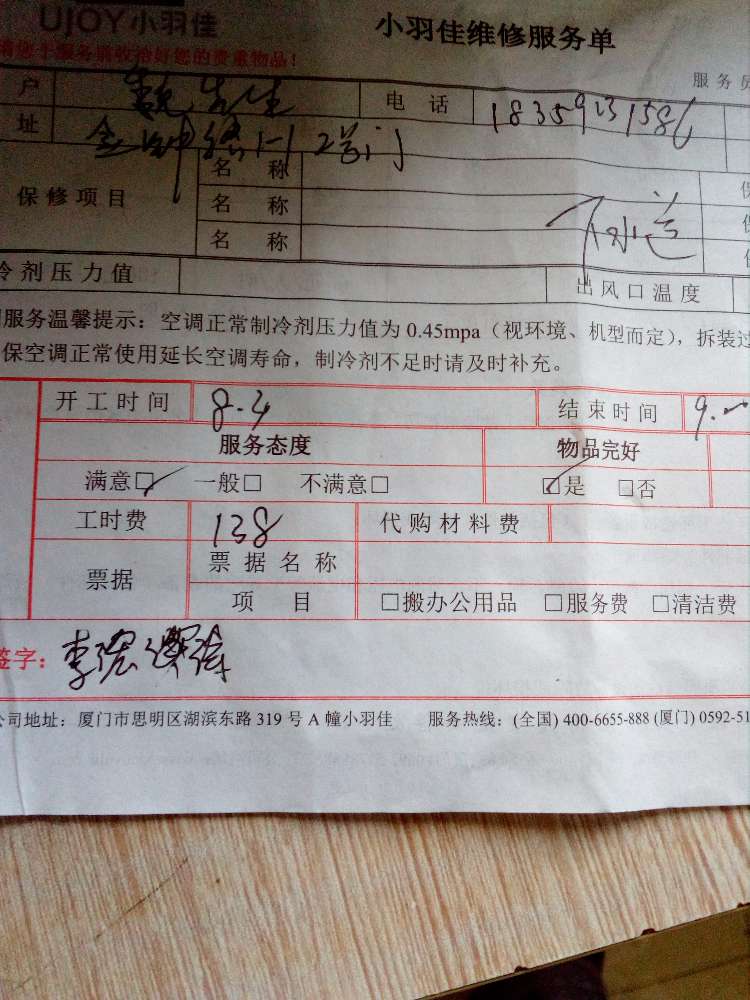 UJOY小羽佳
小羽佳维修服务单
收拾好您的贵重物品！
服务员
户 先生 电话
址
保修项目 名称
名称 下水道
名称
冷剂压力值 出风口温度
服务温馨提示：空调正常制冷剂压力值为 0.45mpa（视环境、机型而定），拆装过
保空调正常使用延长空调寿命，制冷剂不足时请及时补充。
开工时间 结束时间
服务态度 物品完好
满意□ 一般□ 不满意□ □是 □否
工时费 138 代购材料费
票据 票据名称
项目 □搬办公用品 □服务费 □清洁费
签字：
公司地址：厦门市思明区湖滨东路 319 号 A 幢小羽佳 服务热线：(全国) 400-6655-888 (厦门) 0592-51